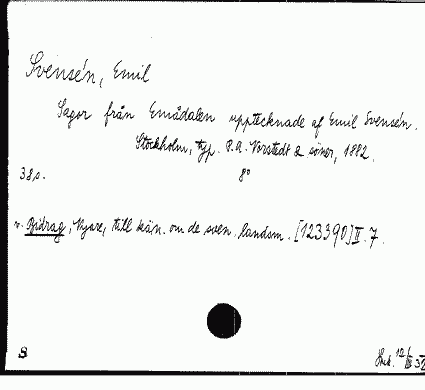 Svensén, Emil
Sagor från Emådalen upptecknade af Emil Svensén.
Stockholm, typ. P.A. Norstedt & söner, 1882.
38 s. 8°
v. Bidrag, Nyare, till kän. om de sven. landsm. [123390] II. 7.
S